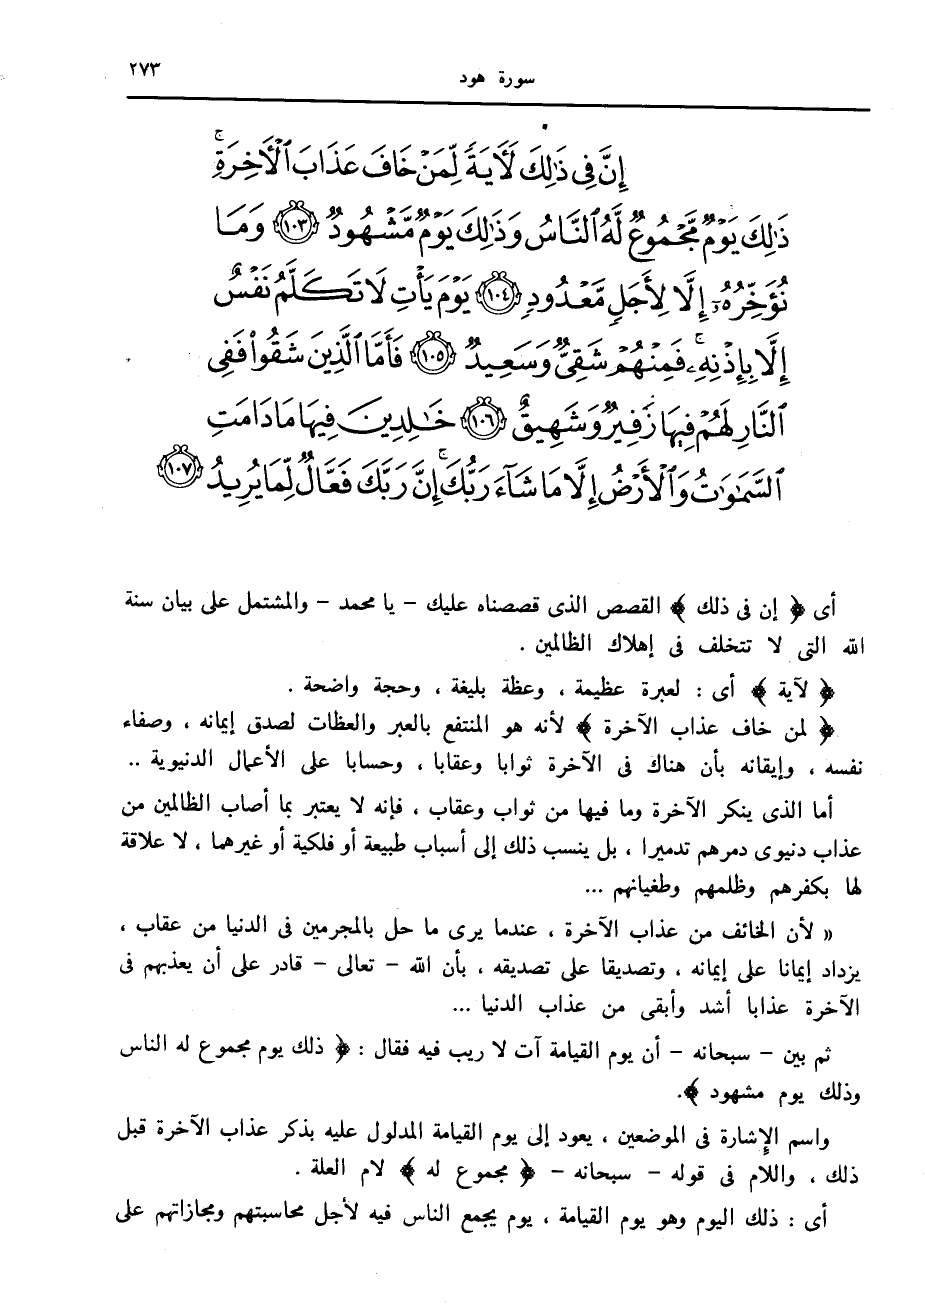 سورة هود
٢٧٣
إِنَّ فِى ذَٰلِكَ لَـَٔايَةً لِّمَنْ خَافَ عَذَابَ ٱلْـَٔاخِرَةِ ۚ
ذَٰلِكَ يَوْمٌ مَّجْمُوعٌ لَّهُ ٱلنَّاسُ وَذَٰلِكَ يَوْمٌ مَّشْهُودٌ ﴿١٠٣﴾ وَمَا
نُؤَخِّرُهُۥٓ إِلَّا لِأَجَلٍ مَّعْدُودٍ ﴿١٠٤﴾ يَوْمَ يَأْتِ لَا تَكَلَّمُ نَفْسٌ
إِلَّا بِإِذْنِهِۦ ۚ فَمِنْهُمْ شَقِىٌّ وَسَعِيدٌ ﴿١٠٥﴾ فَأَمَّا ٱلَّذِينَ شَقُوا۟ فَفِى
ٱلنَّارِ لَهُمْ فِيهَا زَفِيرٌ وَشَهِيقٌ ﴿١٠٦﴾ خَـٰلِدِينَ فِيهَا مَا دَامَتِ
ٱلسَّمَـٰوَٰتُ وَٱلْأَرْضُ إِلَّا مَا شَآءَ رَبُّكَ ۚ إِنَّ رَبَّكَ فَعَّالٌ لِّمَا يُرِيدُ ﴿١٠٧﴾
أى ﴿ إن فى ذلك ﴾ القصص الذى قصصناه عليك - يا محمد - والمشتمل على بيان سنة
الله التى لا تتخلف فى إهلاك الظالمين .
﴿ لآية ﴾ أى : لعبرة عظيمة ، وعظة بليغة ، وحجة واضحة .
﴿ لمن خاف عذاب الآخرة ﴾ لأنه هو المنتفع بالعبر والعظات لصدق إيمانه ، وصفاء
نفسه ، وإيقانه بأن هناك فى الآخرة ثوابا وعقابا ، وحسابا على الأعمال الدنيوية ..
أما الذى ينكر الآخرة وما فيها من ثواب وعقاب ، فإنه لا يعتبر بما أصاب الظالمين من
عذاب دنيوى دمرهم تدميرا ، بل ينسب ذلك إلى أسباب طبيعة أو فلكية أو غيرهما ، لا علاقة
لها بكفرهم وظلمهم وطغيانهم ...
« لأن الخائف من عذاب الآخرة ، عندما يرى ما حل بالمجرمين فى الدنيا من عقاب ،
يزداد إيمانا على إيمانه ، وتصديقا على تصديقه ، بأن الله - تعالى - قادر على أن يعذبهم فى
الآخرة عذابا أشد وأبقى من عذاب الدنيا ...
ثم بين - سبحانه - أن يوم القيامة آت لا ريب فيه فقال : ﴿ ذلك يوم مجموع له الناس
وذلك يوم مشهود ﴾.
واسم الإشارة فى الموضعين ، يعود إلى يوم القيامة المدلول عليه بذكر عذاب الآخرة قبل
ذلك ، واللام فى قوله - سبحانه - ﴿ مجموع له ﴾ لام العلة .
أى : ذلك اليوم وهو يوم القيامة ، يوم يجمع الناس فيه لأجل محاسبتهم ومجازاتهم على